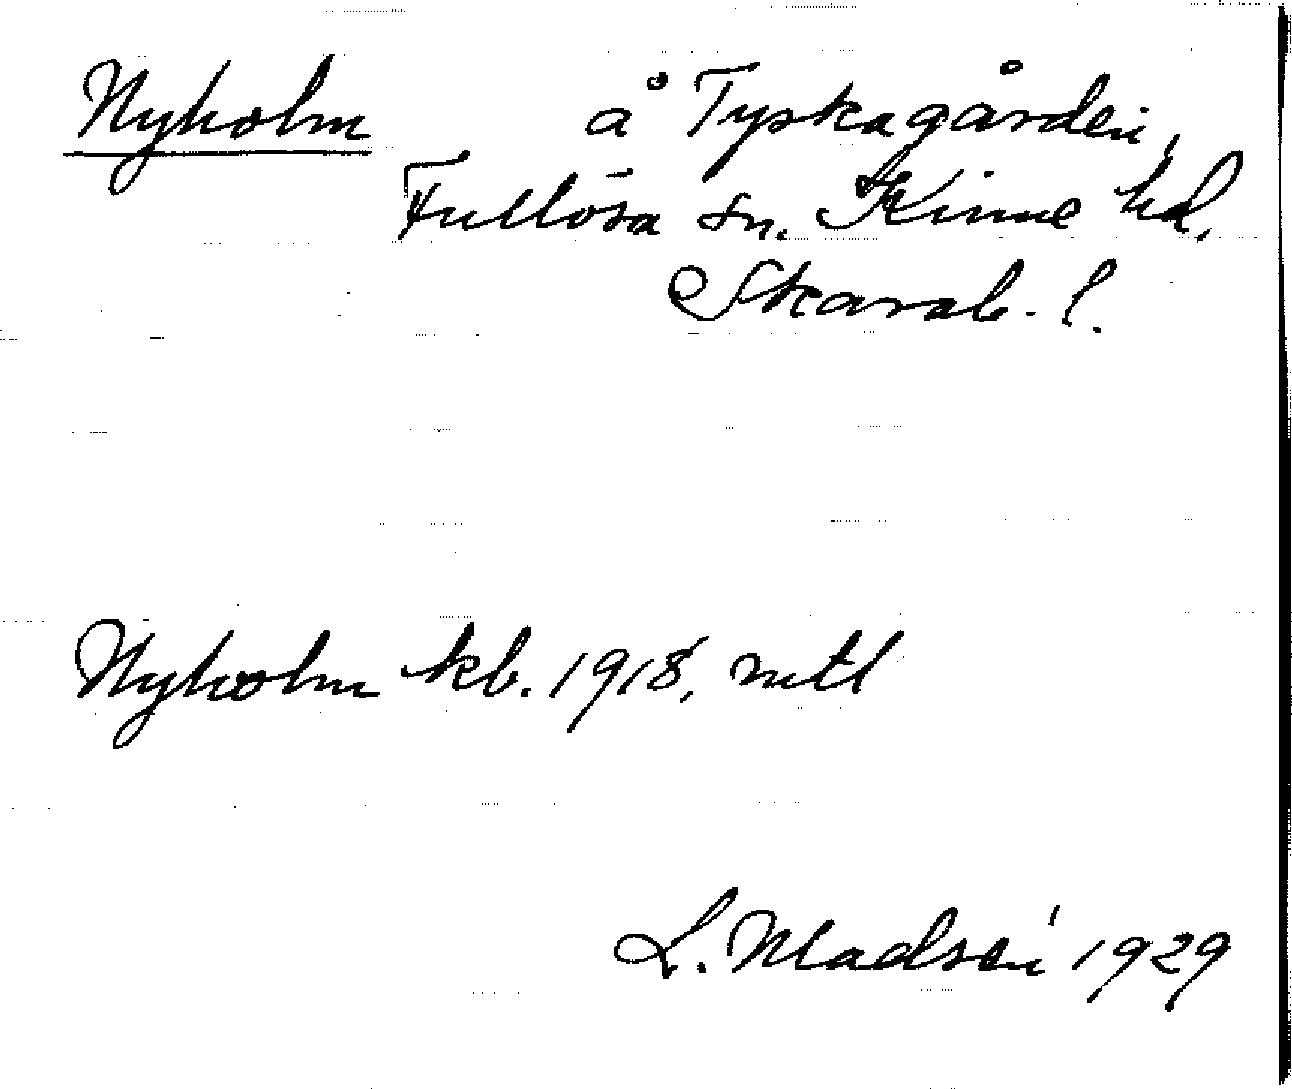 Nyholm å Tyskagården,
Fullösa sn. Kinne hd,
Skarab. l.
Nyholm kb. 1918, mtl
L. Madsén 1929